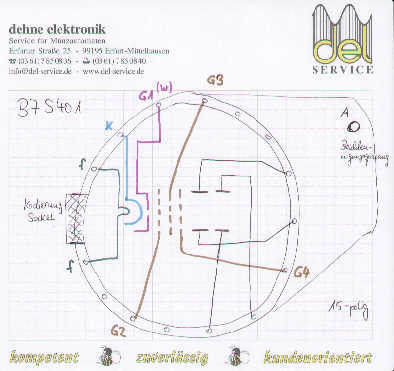 dehne elektronik
Service für Münzautomaten
Erfurter Straße 25 - 99195 Erfurt-Mittelhausen
info@del-service.de - www.del-service.de
del
SERVICE
B7S401
G1 (w)
G3
A
K
f
Kodierung
Sockel
f
G4
G2
15-polig
kompetent
zuverlässig
kundenorientiert